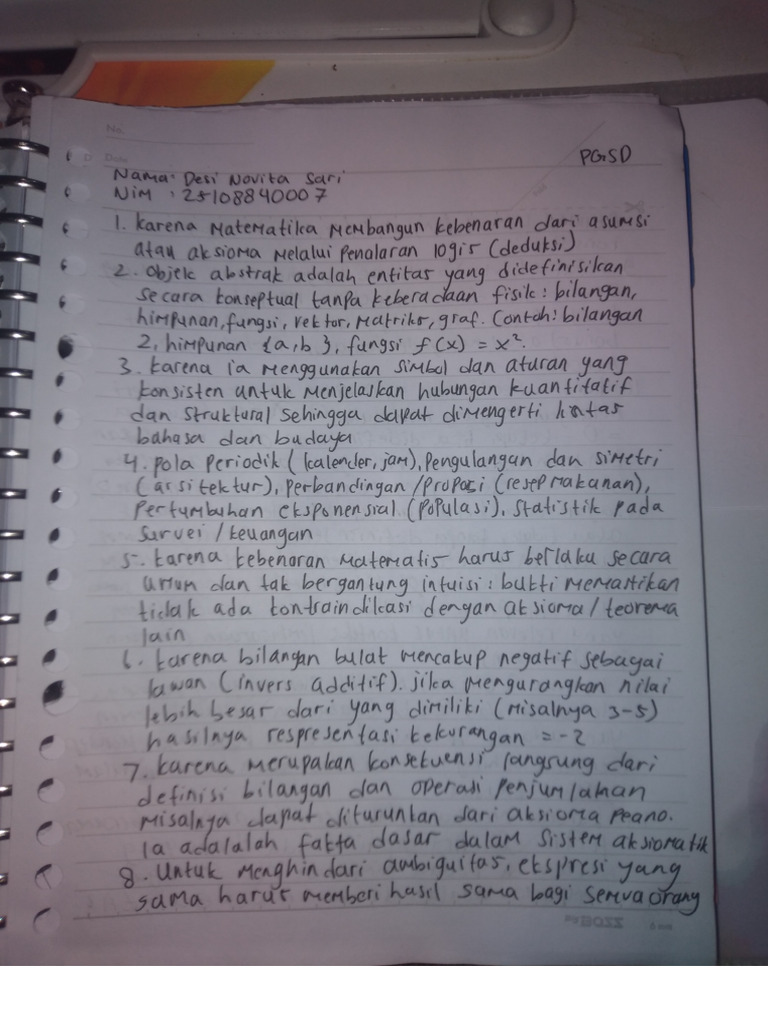 No.
Date
PGSD
Nama: Desi Novita Sari
Nim : 25108840007
1. karena Matematika Membangun kebenaran dari asumsi
atau aksioma Melalui Penalaran logis (deduksi)
2. Objek abstrak adalah entitas yang didefinisikan
secara konseptual tanpa keberadaan fisik: bilangan,
himpunan, fungsi, vektor, Matriks, graf. Contoh: bilangan
2, himpunan {a,b}, fungsi f(x) = x².
3. karena ia Menggunakan Simbol dan aturan yang
konsisten untuk Menjelaskan hubungan kuantitatif
dan struktural sehingga dapat dimengerti lintas
bahasa dan budaya
4. pola Periodik (kalender, jam), Pengulangan dan simetri
(arsitektur), Perbandingan / Proposi (resep makanan),
Pertumbuhan eksponensial (Populasi), Statistik pada
Survei / keuangan
5. karena kebenaran Matematis harus berlaku secara
umum dan tak bergantung intuisi: bukti memastikan
tidak ada kontraindikasi dengan aksioma / teorema
lain
6. karena bilangan bulat mencakup negatif sebagai
lawan (invers additif). jika mengurangkan nilai
lebih besar dari yang dimiliki (Misalnya 3-5)
hasilnya respresentasi kekurangan = -2
7. karena merupakan konsekuensi langsung dari
definisi bilangan dan operasi penjumlahan
Misalnya dapat diturunkan dari aksioma Peano.
Ia adalalah fakta dasar dalam Sistem aksiomatik
8. Untuk Menghindari ambiguitas, ekspresi yang
sama harus memberi hasil sama bagi semua orang
BOSS